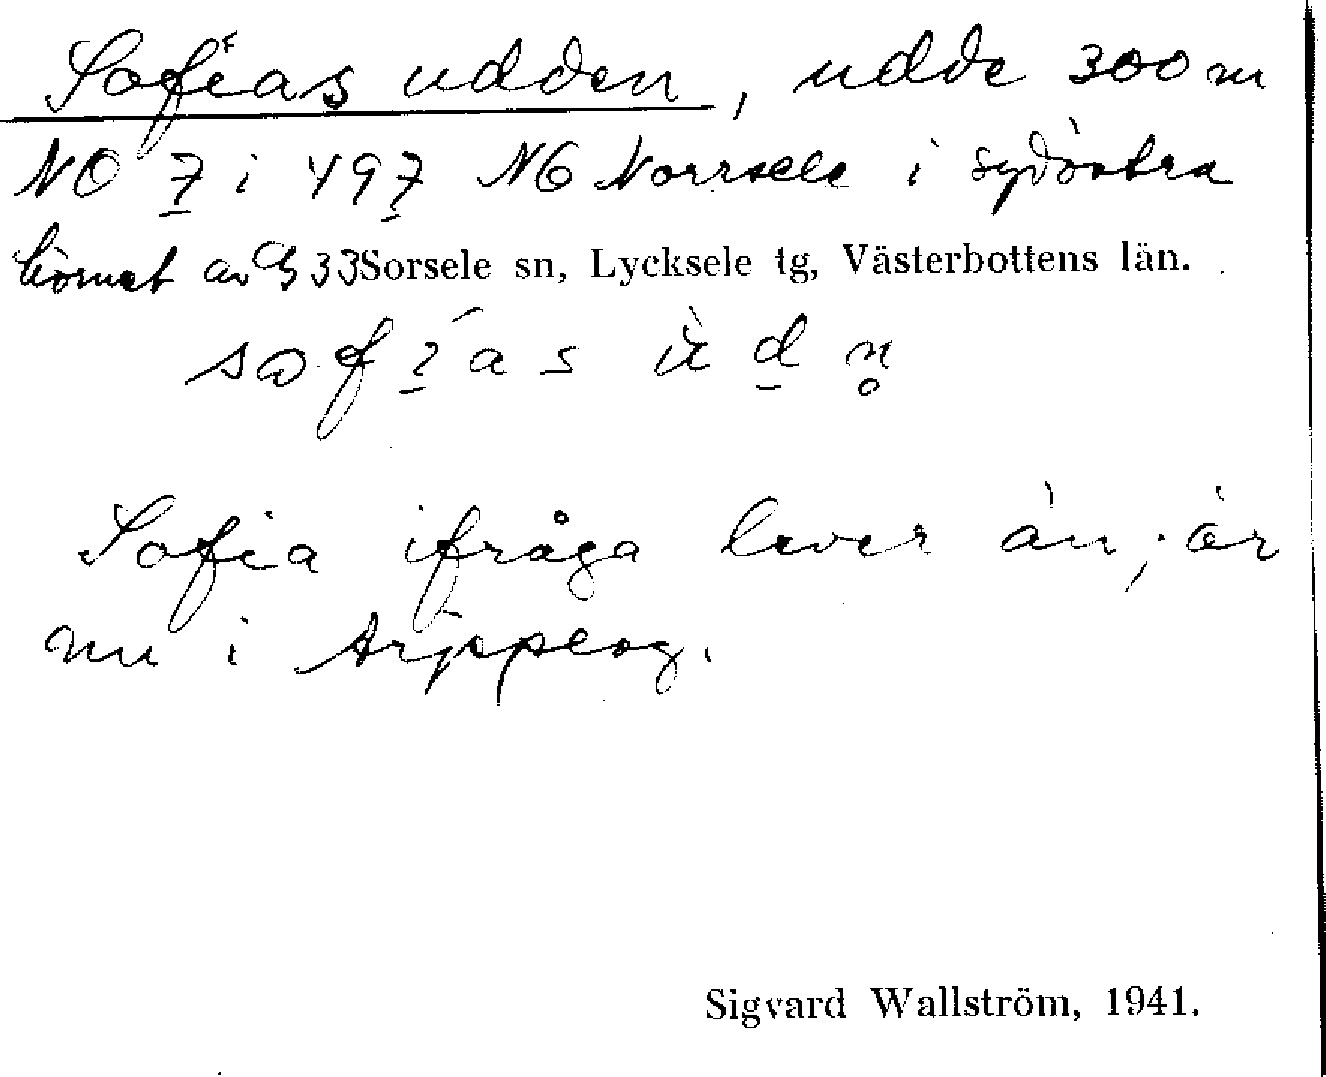 Sofias udden, udde 300 m
NO 7 i 497 NO Norrsele i sydöstra
hörnet av 33 Sorsele sn, Lycksele tg, Västerbottens län.
Sofia ifråga lever än; är
nu i Arjeplog.
Sigvard Wallström, 1941.